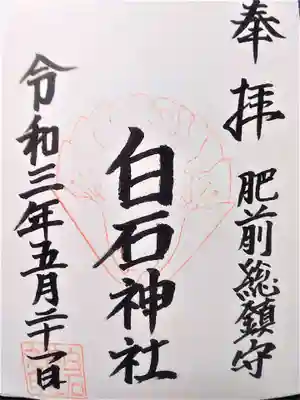 奉拝 肥前総鎮守
白石神社
令和三年五月二十一日